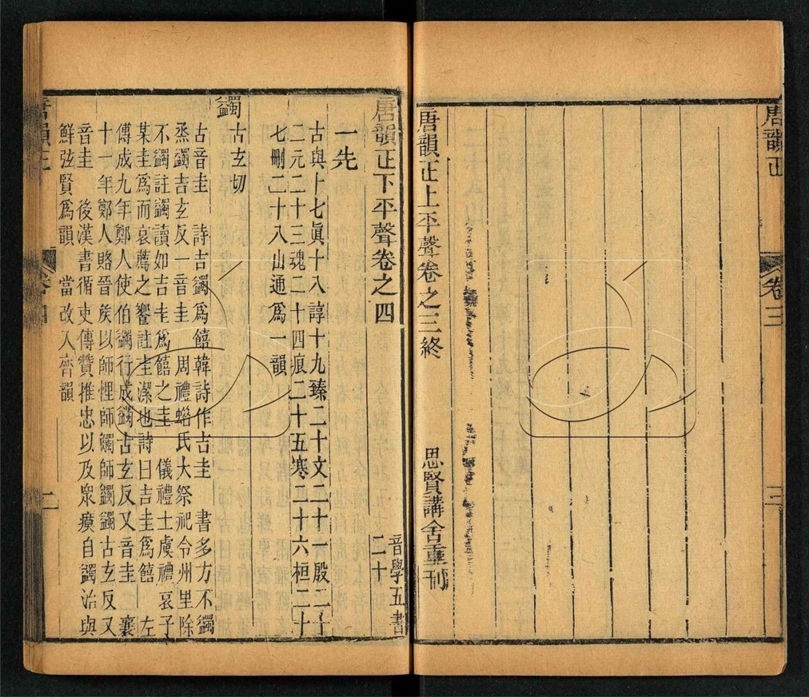 唐韻正
卷三
唐韻正上平聲卷之三終
思賢講舍重刊
唐韻正下平聲卷之四
音學五書
二十
一先
古與十七眞十八諄十九臻二十文二十一殷二十
二元二十三魂二十四痕二十五寒二十六桓二十
七刪二十八山通爲一韻
蠲
古玄切
古音圭　詩吉蠲爲饎韓詩作吉圭　書多方不蠲
烝蠲吉玄反一音圭　周禮蜡氏大祭祀令州里除
不蠲註蠲讀如吉圭爲饎之圭　儀禮士虞禮哀子
某圭爲而哀薦之饗註圭潔也詩曰吉圭爲饎　左
傳成九年鄭人使伯蠲行成蠲古玄反又音圭　襄
十一年鄭人賂晉矦以師悝師觸師蠲蠲古玄反又
音圭　後漢書循吏傳贊推忠以及眾瘼自蠲治與
鮮弦賢爲韻　當改入齊韻
唐韻正
卷四